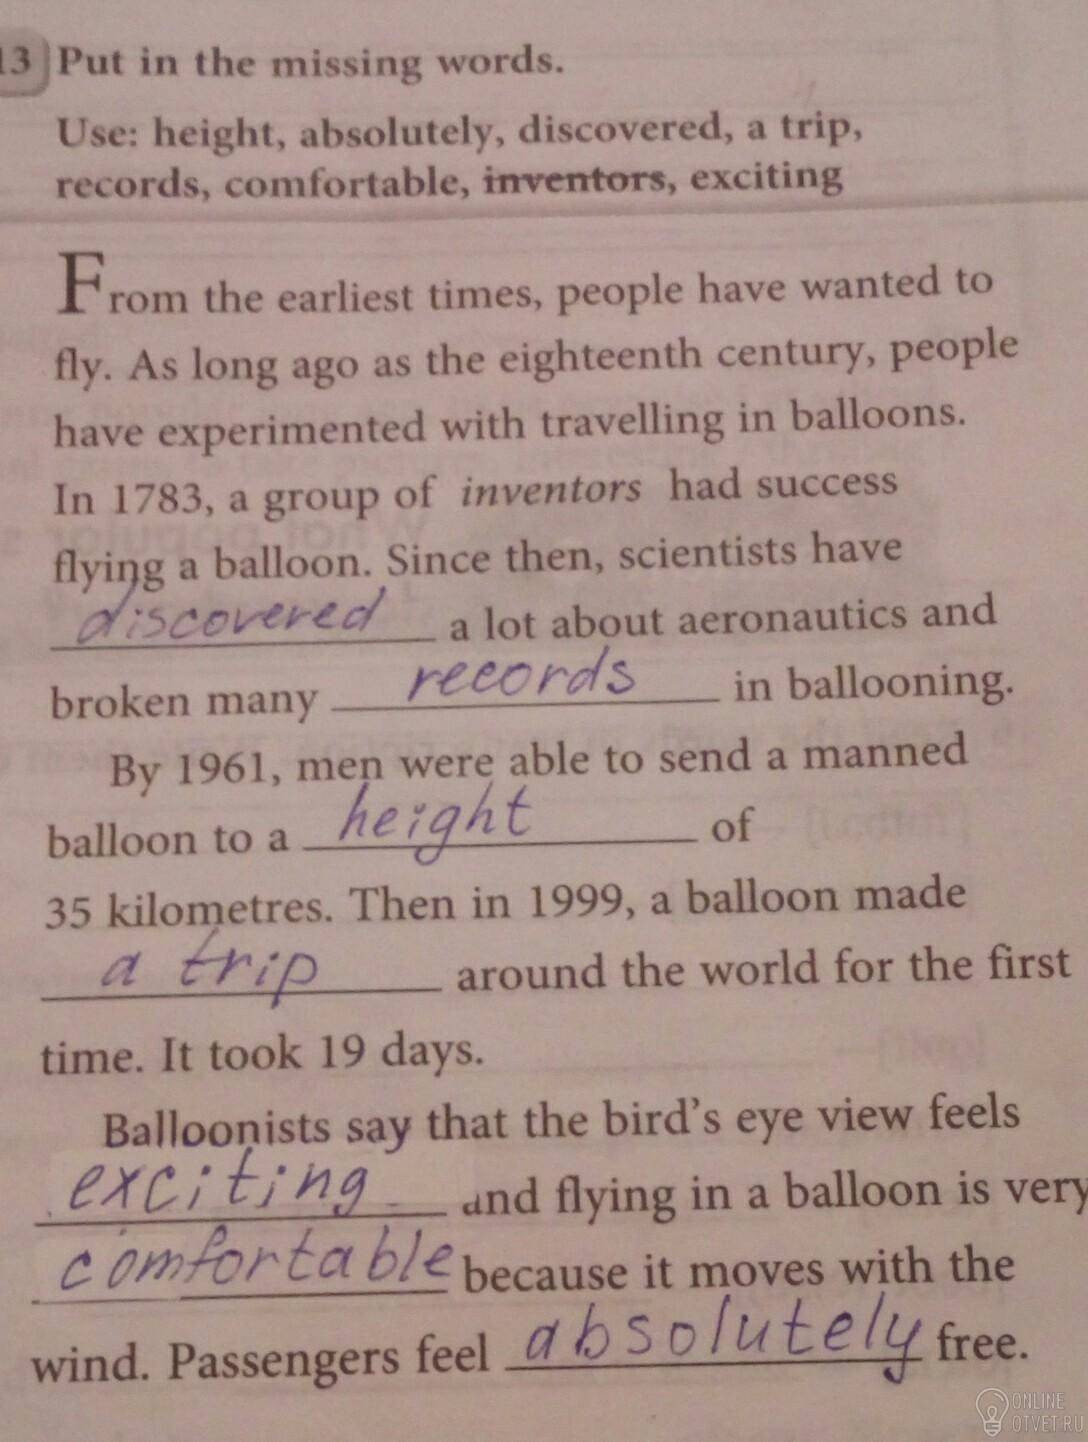 13 Put in the missing words.
Use: height, absolutely, discovered, a trip,
records, comfortable, inventors, exciting
From the earliest times, people have wanted to
fly. As long ago as the eighteenth century, people
have experimented with travelling in balloons.
In 1783, a group of inventors had success
flying a balloon. Since then, scientists have
discovered a lot about aeronautics and
broken many records in ballooning.
By 1961, men were able to send a manned
balloon to a height of
35 kilometres. Then in 1999, a balloon made
a trip around the world for the first
time. It took 19 days.
Balloonists say that the bird's eye view feels
exciting and flying in a balloon is very
comfortable because it moves with the
wind. Passengers feel absolutely free.
ONLINE
OTVET.RU